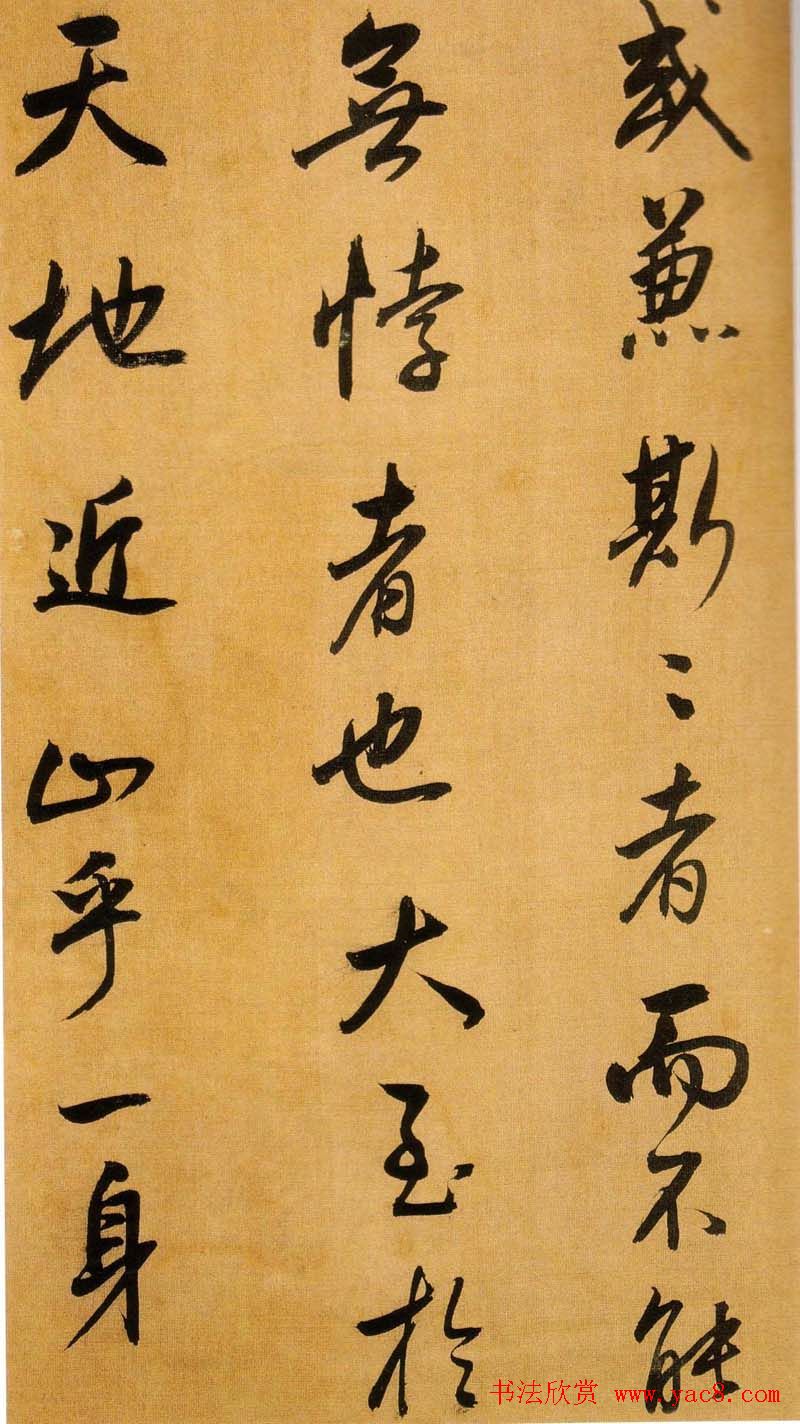 或兼斯二者而不能
無悖者也大至於
天地近止乎一身
书法欣赏 www.yac8.com